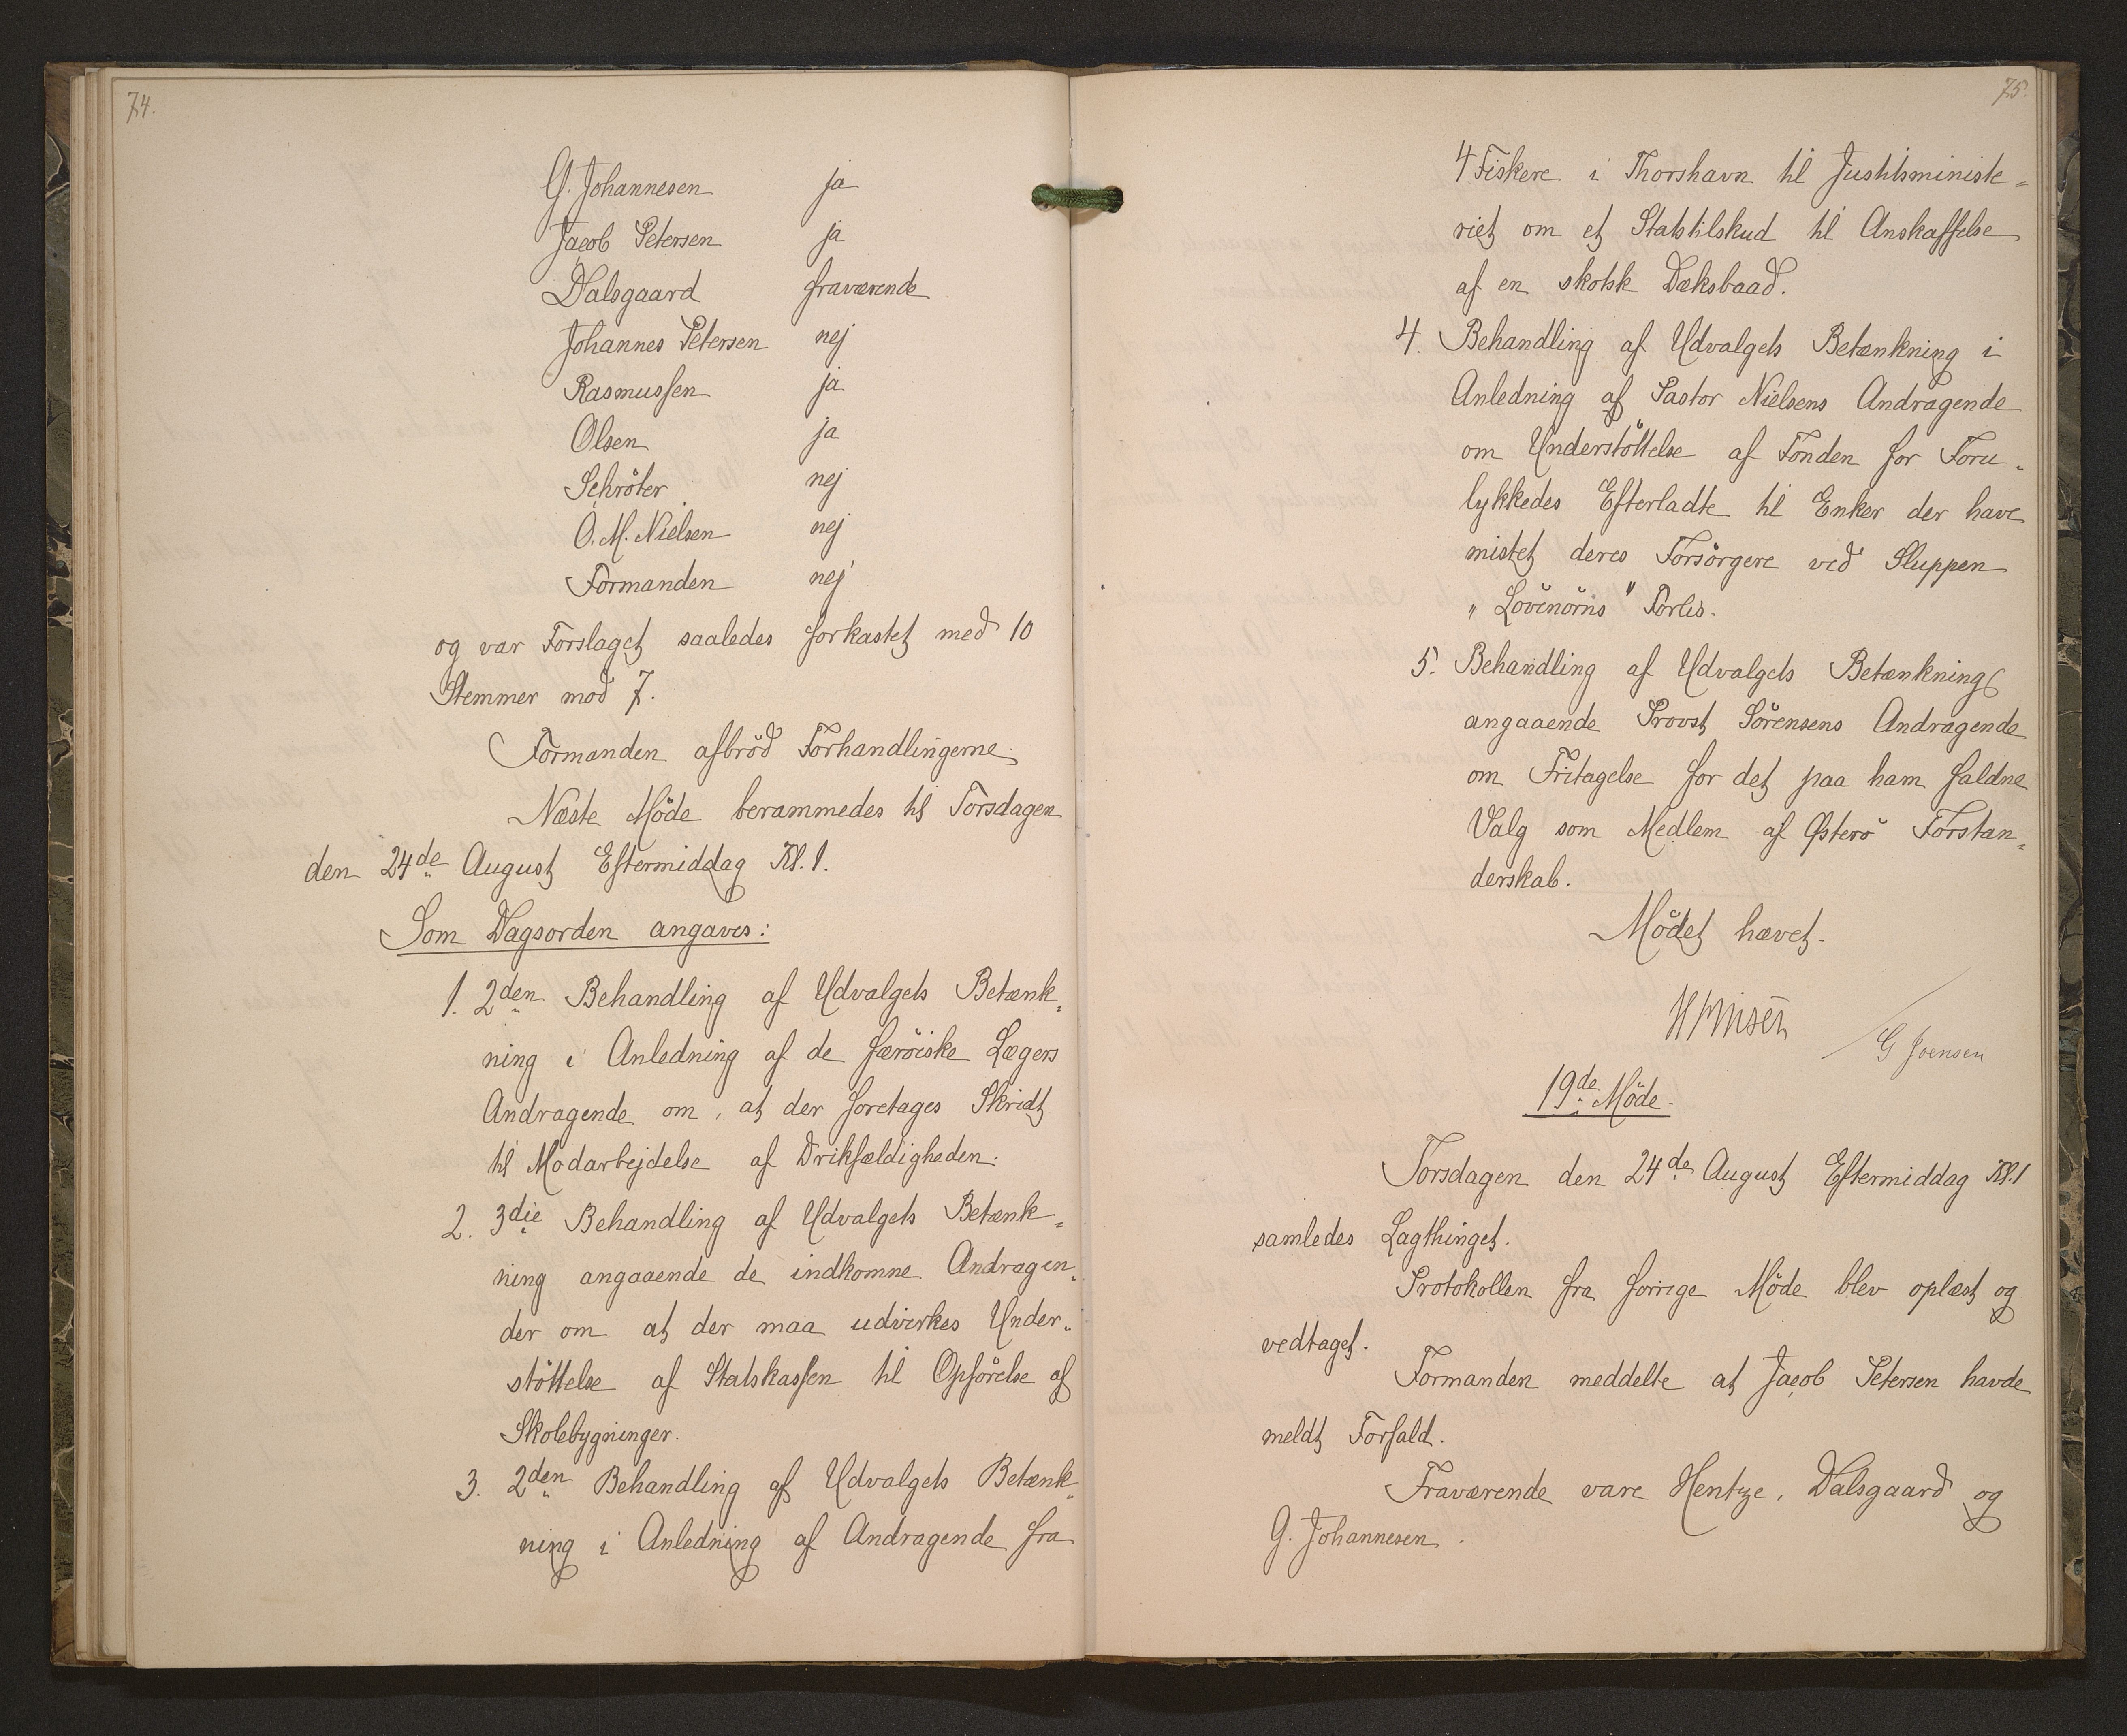 74.
G. Johannesen ja
Jacob Petersen ja
Dalsgaard fraværende
Johannes Petersen nej
Rasmussen ja
Olsen ja
Schröter nej
O. M. Nielsen nej
Formanden nej
og var Forslaget saaledes forkastet med 10
Stemmer mod 7.
Formanden afbröd Forhandlingerne.
Næste Möde berammedes til Torsdagen
den 24de August Eftermiddag Kl. 1.
Som Dagsorden angaves:
1. 2den Behandling af Udvalgets Betænk„
ning i Anledning af de færöiske Lægers
Andragende om, at der foretages Skridt
til Modarbejdelse af Drikfældigheden.
2. 3die Behandling af Udvalgets Betænk„
ning angaaende de indkomne Andragen„
der om at der maa udvirkes Under„
stöttelse af Statskassen til Opförelse af
Skolebygninger.
3. 2den Behandling af Udvalgets Betænk„
ning i Anledning af Andragende fra
75.
4 Fiskere i Thorshavn til Justitsministe„
riet om et Statstilskud til Anskaffelse
af en skotsk Dæksbaad.
4. Behandling af Udvalgets Betænkning i
Anledning af Pastor Nielsens Andragende
om Understöttelse af Fonden for Foru„
lykkedes Efterladte til Enker der have
mistet deres Forsörgere ved Sluppen
„Lövenörns" Forlis.
5. Behandling af Udvalgets Betænkning
angaaende Provst Sörensens Andragende
om Fritagelse for det paa ham faldne
Valg som Medlem af Österö Forstan„
derskab.
Mödet hævet.
G Joensen
19de Möde.
Torsdagen den 24de August Eftermiddag Kl. 1
samledes Lagthinget.
Protokollen fra forrige Möde blev oplæst og
vedtaget.
Formanden meddelte at Jacob Petersen havde
meldt Forfald.
Fraværende vare Hentze, Dalsgaard og
G. Johannesen.